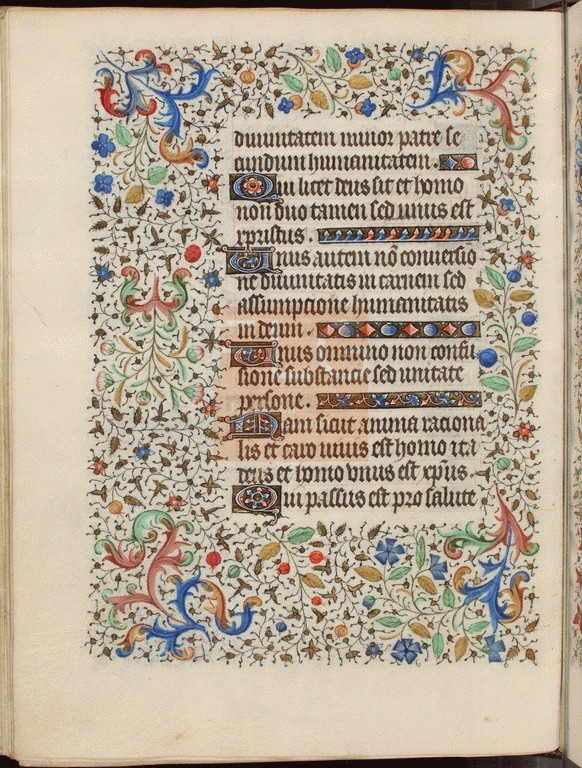 diuinitatem minor patre se
cundum humanitatem.
Qui licet deus sit et homo
non duo tamen sed unus est
xpristus.
Unus autem nō conuersio
ne diuinitatis in carnem sed
assumptione humanitatis
in deum.
Unus omnino non confu
sione substancie sed unitate
persone.
Nam sicut anima raciona
lis et caro unus est homo ita
deus et homo vnus est xpūs.
Qui passus est pro salute